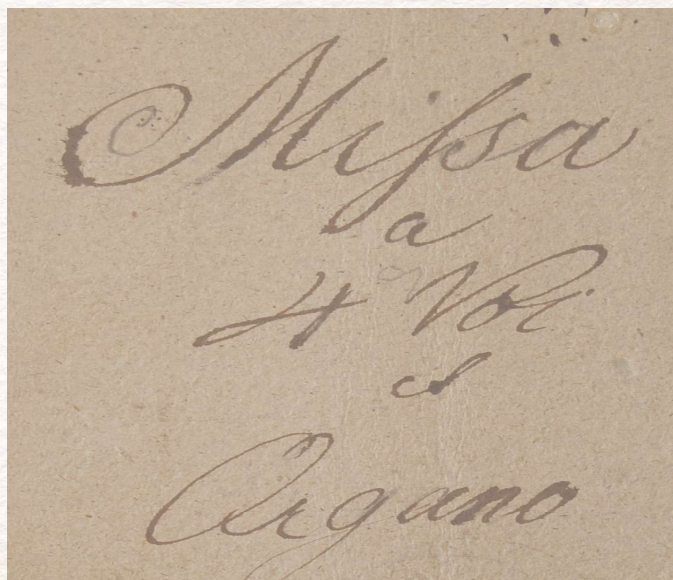 Missa
a
4 Voci
et
Organo